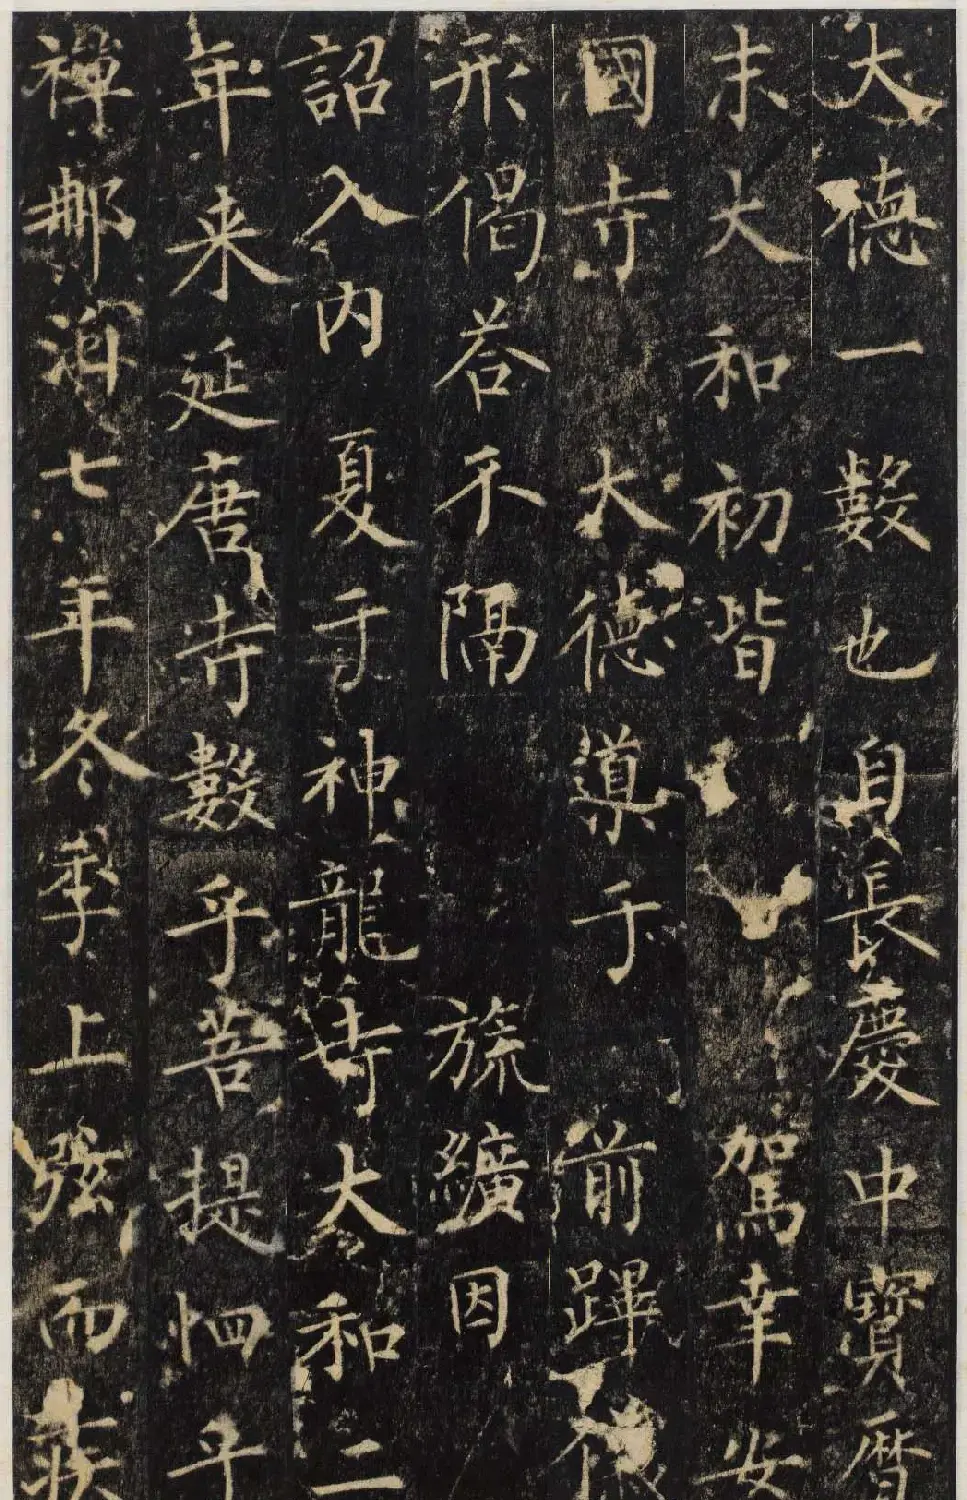 大德一數也自長慶中寶曆
末大和初皆駕幸安
國寺大德導于前蹕儼
形偈答不隔旒纊因
詔入内夏于神龍寺大和二
年来延唐寺數乎菩提恒乎
禪那洎七年冬季上弦而疾